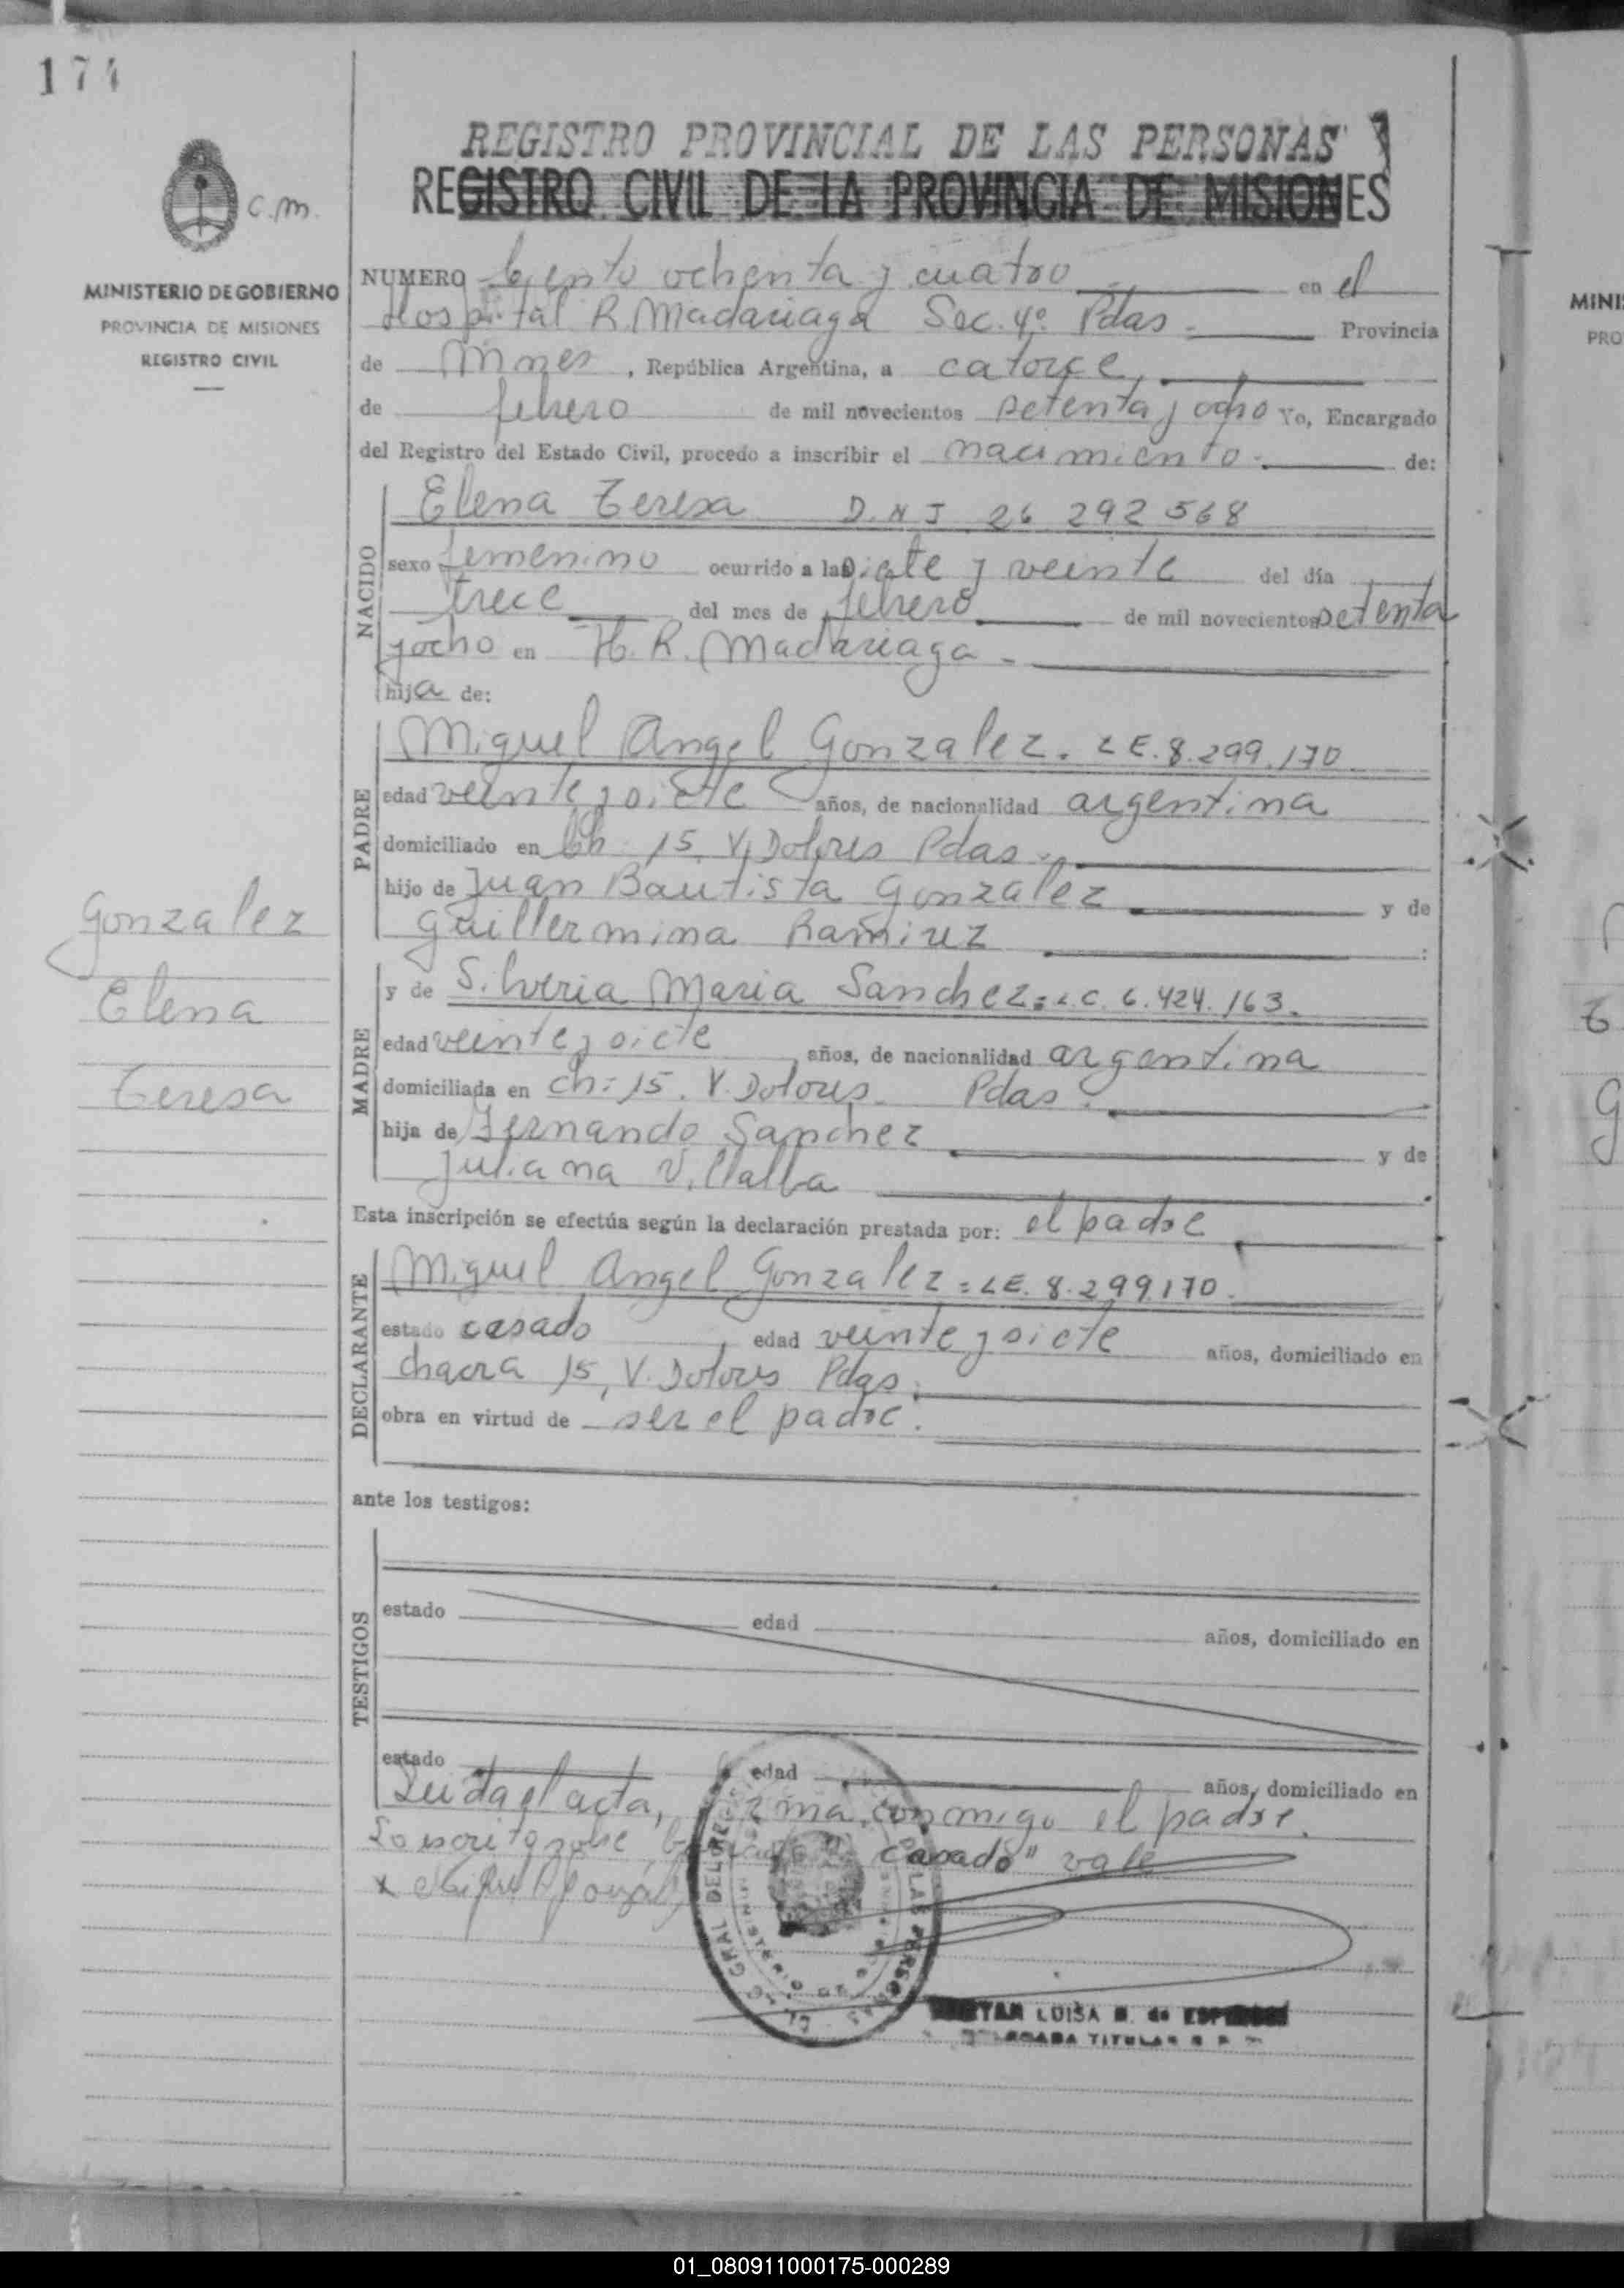 174
REGISTRO PROVINCIAL DE LAS PERSONAS
REGISTRO CIVIL DE LA PROVINCIA DE MISIONES
c.m.
MINISTERIO DE GOBIERNO
PROVINCIA DE MISIONES
REGISTRO CIVIL
NUMERO Ciento ochenta y cuatro en el
Hospital R. Madariaga Sec. 4º Pdas. Provincia
de Mnes, República Argentina, a catorce,
de febrero de mil novecientos setenta y ocho Yo, Encargado
del Registro del Estado Civil, procedo a inscribir el nacimiento. de:
NACIDO
Elena Teresa D.N.I 26 292 568
sexo femenino ocurrido a las siete y veinte del día
trece del mes de febrero de mil novecientos setenta
y ocho en H. R. Madariaga.
hija de:
PADRE
Miguel Angel Gonzalez. LE. 8.299.170
edad veinte y siete años, de nacionalidad argentina
domiciliado en Ch 15, V. Dolores Pdas.
hijo de Juan Bautista Gonzalez y de
Guillermina Ramirez
Gonzalez
Elena
Teresa
MADRE
y de Silveria Maria Sanchez = L.C. 6.424.163.
edad veinte y siete años, de nacionalidad argentina
domiciliada en ch: 15. V. Dolores. Pdas.
hija de Fernando Sanchez y de
Juliana Villalba
Esta inscripción se efectúa según la declaración prestada por: el padre
DECLARANTE
Miguel Angel Gonzalez = LE. 8.299.170.
estado casado, edad veinte y siete años, domiciliado en
chacra 15, V. Dolores Pdas.
obra en virtud de ser el padre.
ante los testigos:
TESTIGOS
estado edad años, domiciliado en
estado edad años, domiciliado en
Leida el acta, firma conmigo el padre.
Lo escrito sobre "casado" vale
LUISA de
TITULAR
MINI
PRO
01_080911000175-000289